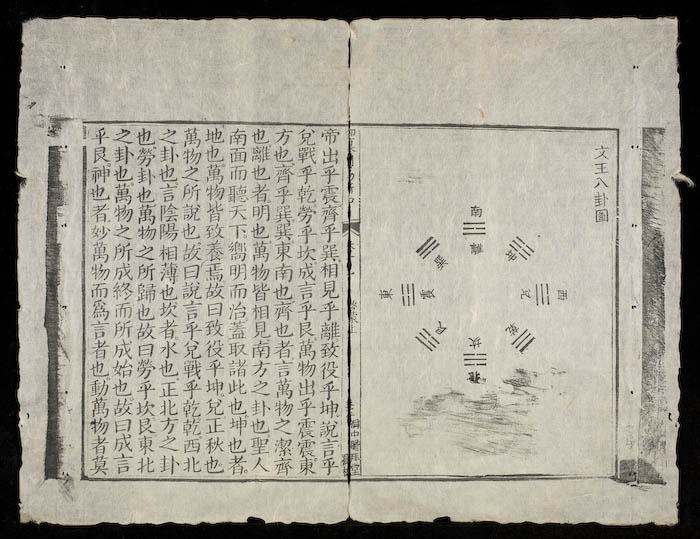 文王八卦圖
南
離
坤
西
兌
乾
坎
北
艮
震
東
巽
帝出乎震齊乎巽相見乎離致役乎坤說言乎
兌戰乎乾勞乎坎成言乎艮萬物出乎震震東
方也齊乎巽巽東南也齊也者言萬物之潔齊
也離也者明也萬物皆相見南方之卦也聖人
南面而聽天下嚮明而治蓋取諸此也坤也者
地也萬物皆致養焉故曰致役乎坤兌正秋也
萬物之所說也故曰說言乎兌戰乎乾乾西北
之卦也言陰陽相薄也坎者水也正北方之卦
也勞卦也萬物之所歸也故曰勞乎坎艮東北
之卦也萬物之所成終而所成始也故曰成言
乎艮神也者妙萬物而爲言者也動萬物者莫